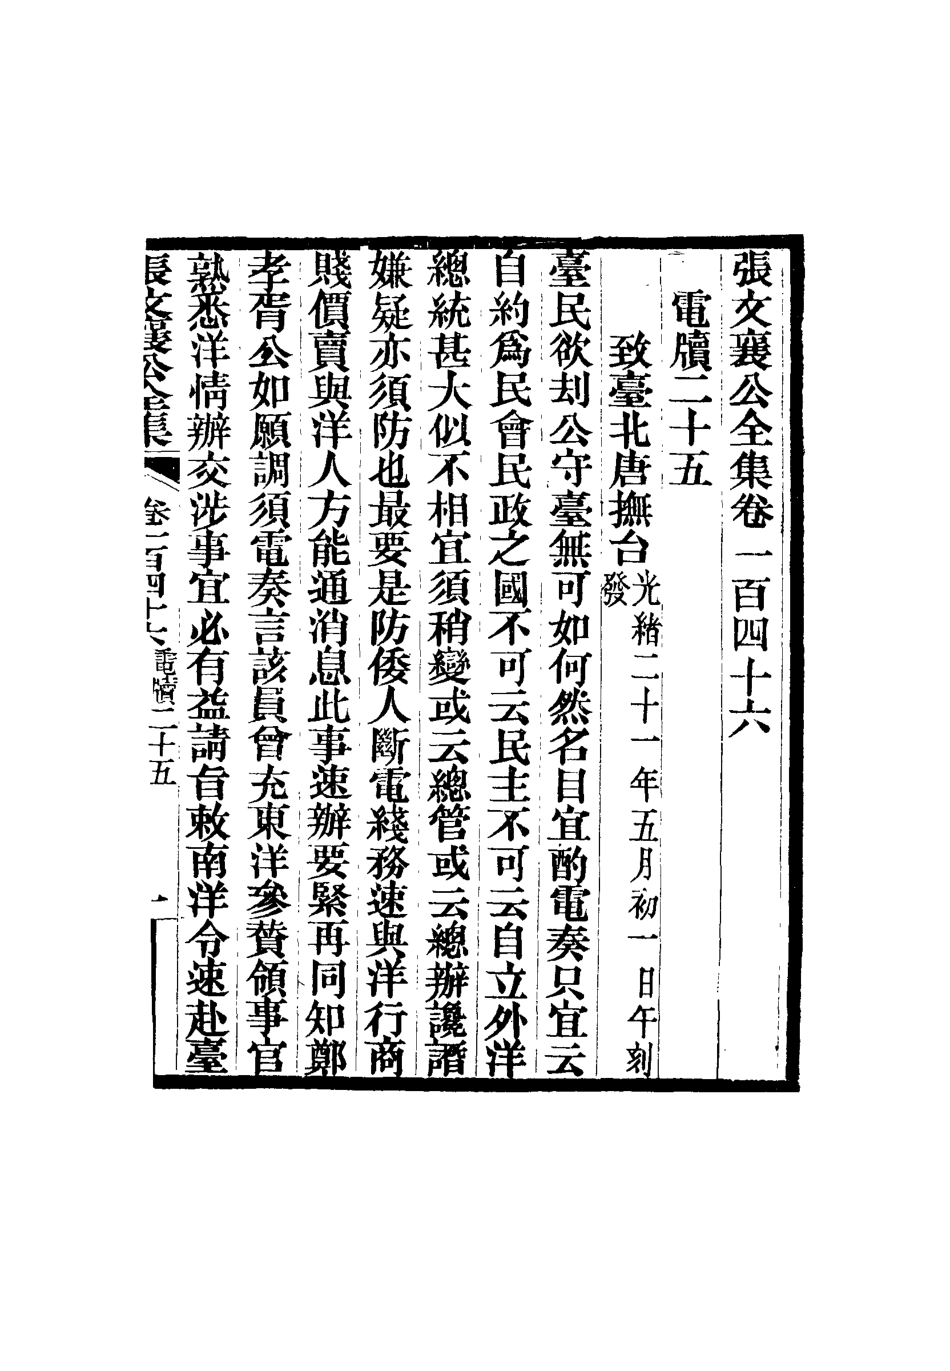 張文襄公全集卷一百四十六
電牘二十五
致臺北唐撫台光緒二十一年五月初一日午刻
發
臺民欲刦公守臺無可如何然名目宜酌電奏只宜云
自約爲民會民政之國不可云民主不可云自立外洋
總統甚大似不相宜須稍變或云總管或云總辦讒譖
嫌疑亦須防也最要是防倭人斷電綫務速與洋行商
賤價賣與洋人方能通消息此事速辦要緊再同知鄭
孝胥公如願調須電奏言該員曾充東洋參贊領事官
熟悉洋情辦交涉事宜必有益請旨敕南洋令速赴臺
張文襄公全集 卷一百四十六 電牘二十五 一